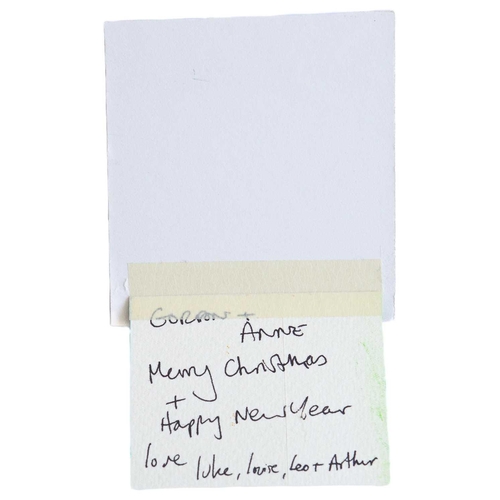 GORDON +
ANNE
Merry Christmas
+
Happy New Year
love Luke, Louise, Leo + Arthur